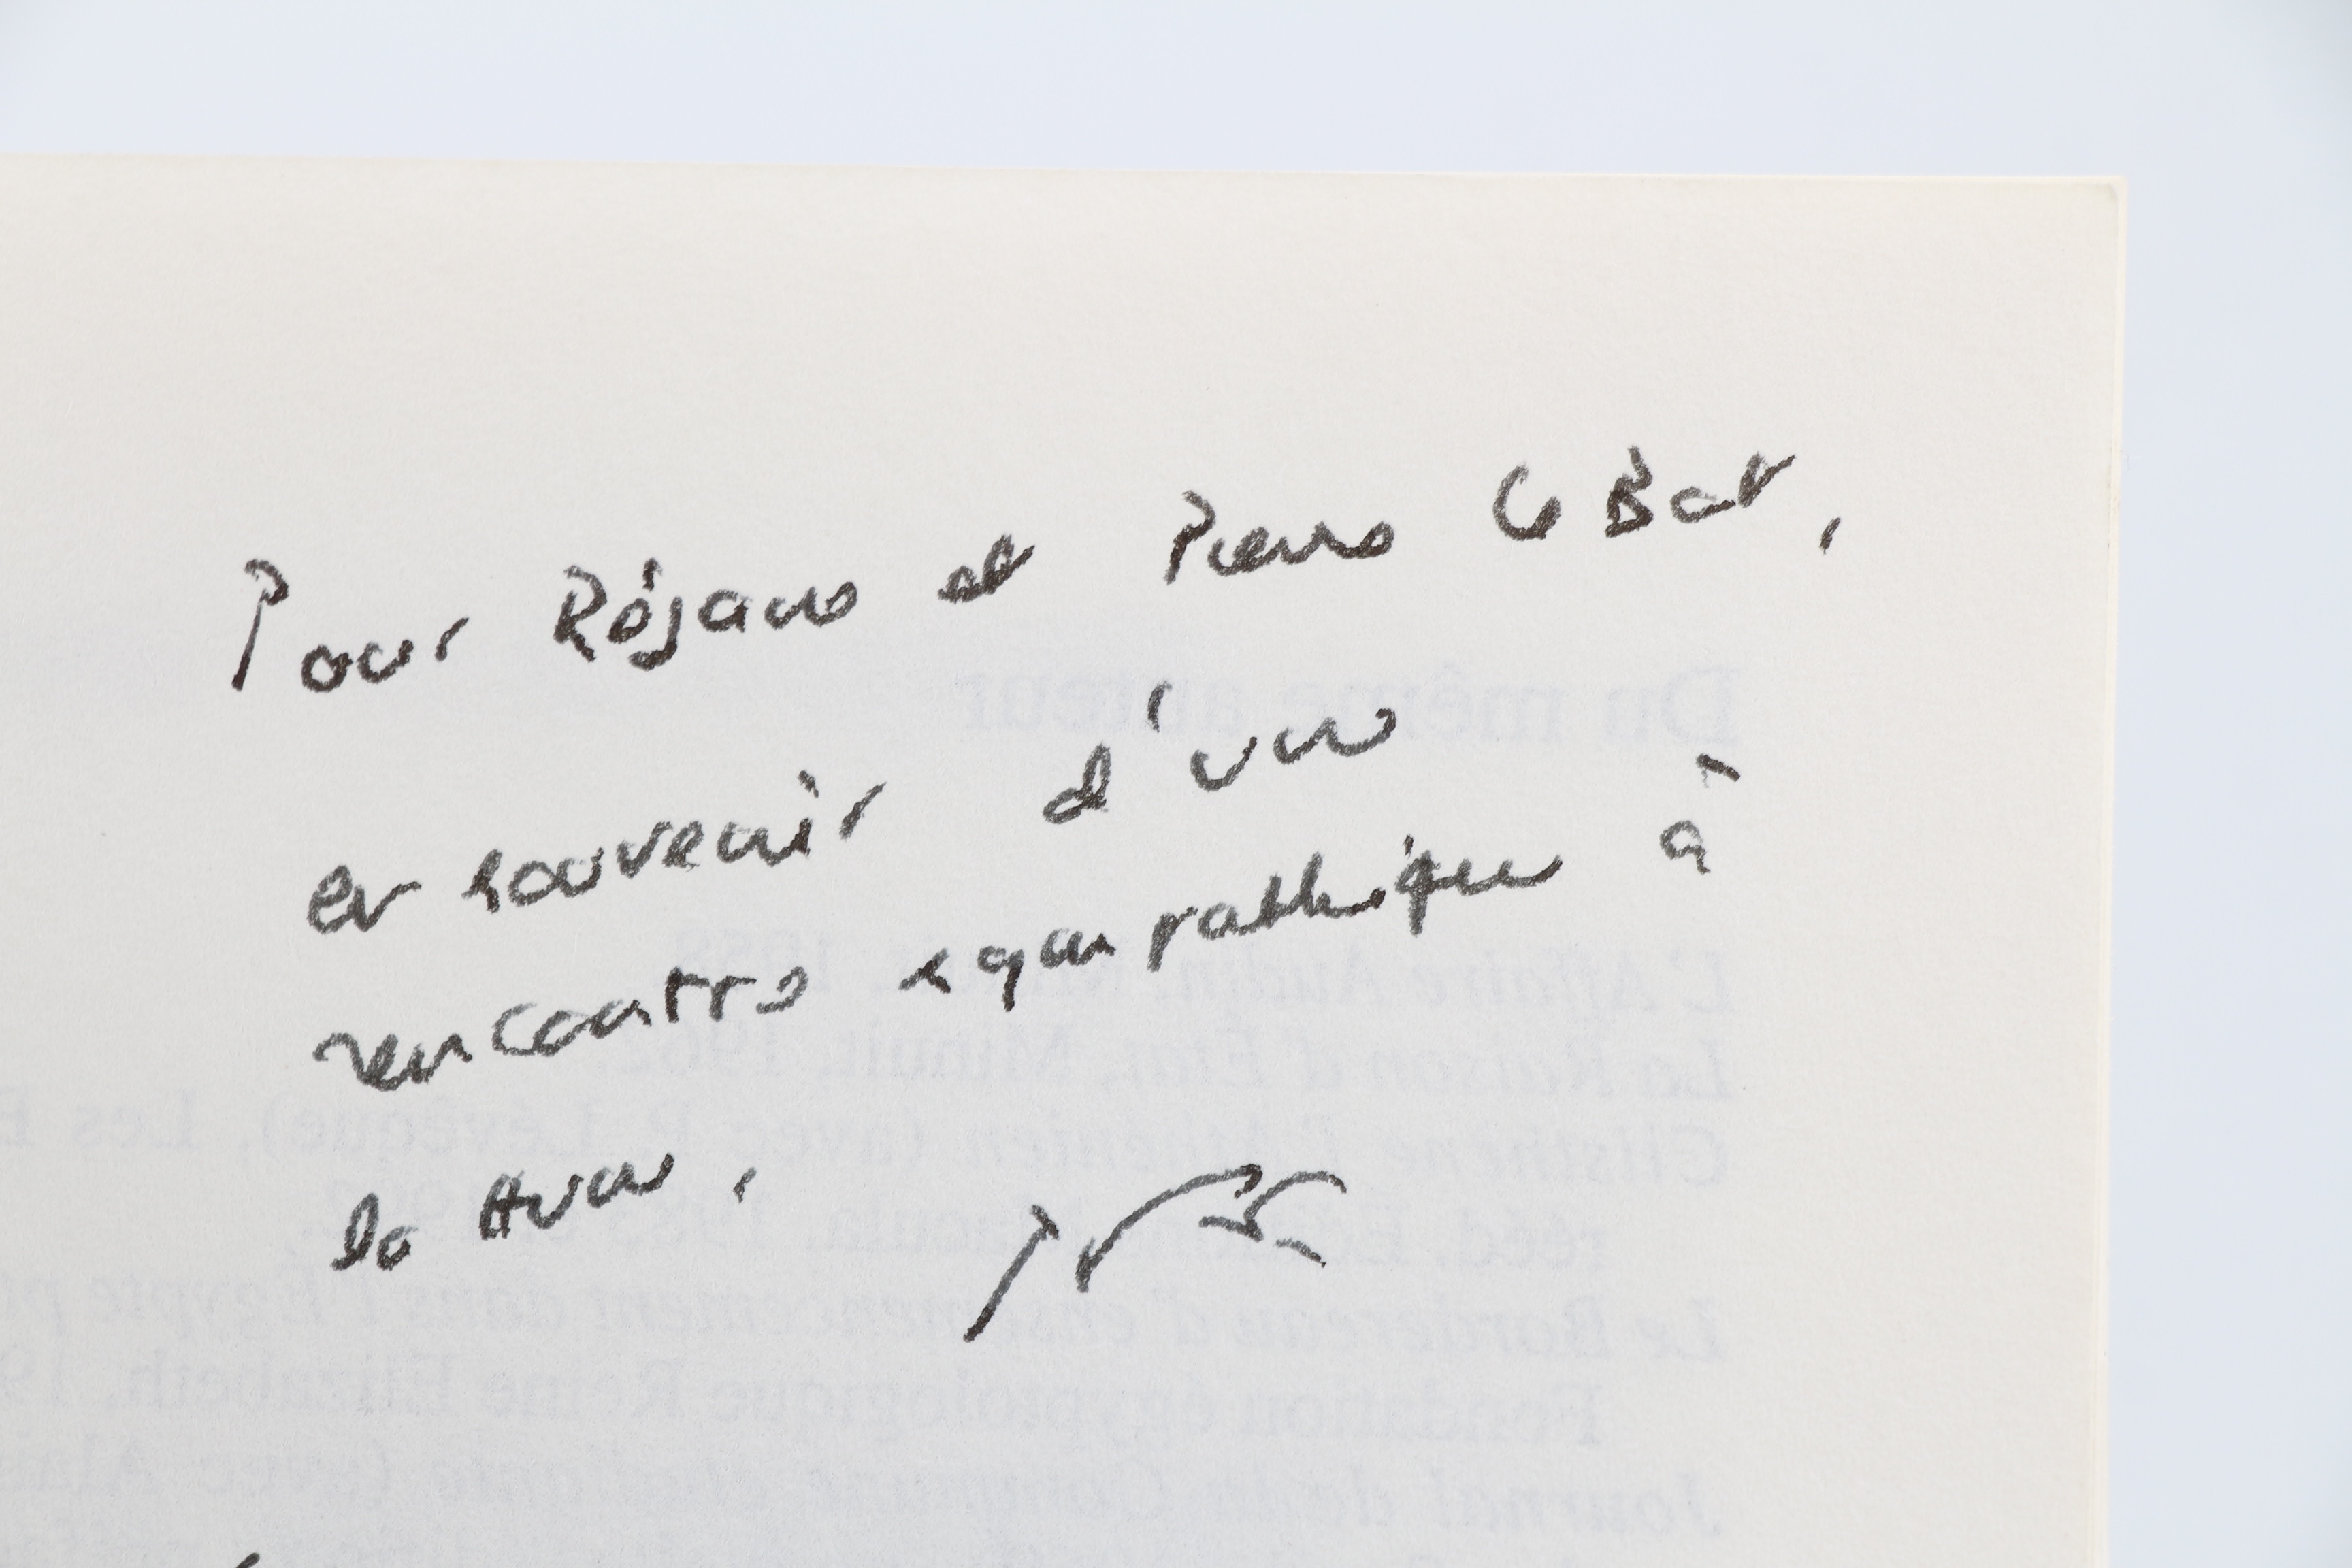 Pour Réjane et Pierre Le Bat,
en souvenir d'une
rencontre sympathique à
la
Du même auteur
L'Affaire Audin, Minuit, 1958.
La Raison d'État, Minuit, 1962.
Clisthène l'Athénien (avec P. Lévêque), Les
rééd. Macula
Le Bordereau d'ensemencement dans l'Égypte
Fondation égyptologique Reine Élisabeth, 19
Journal de la Commune étudiante (avec Alain